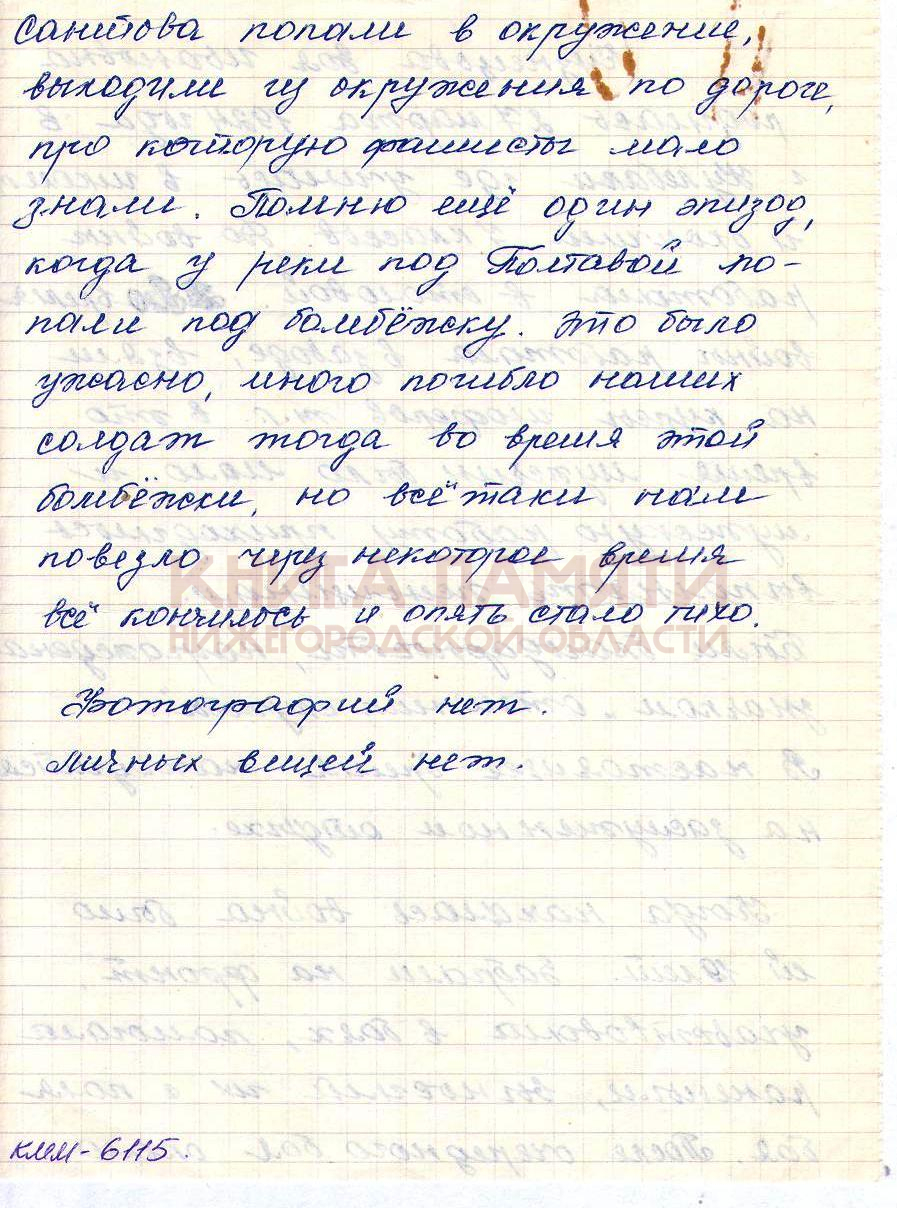 Санитова попали в окружение,
выходили из окружения по дороге,
про которую фашисты мало
знали. Помню ещё один эпизод,
когда у реки под Полтавой по-
пали под бомбёжку. Это было
ужасно, много погибло наших
солдат тогда во время этой
бомбёжки, но всё таки нам
повезло через некоторое время
всё кончилось и опять стало тихо.
КНИГА ПАМЯТИ
НИЖЕГОРОДСКОЙ ОБЛАСТИ
Фотографий нет.
Личных вещей нет.
КММ-6115.